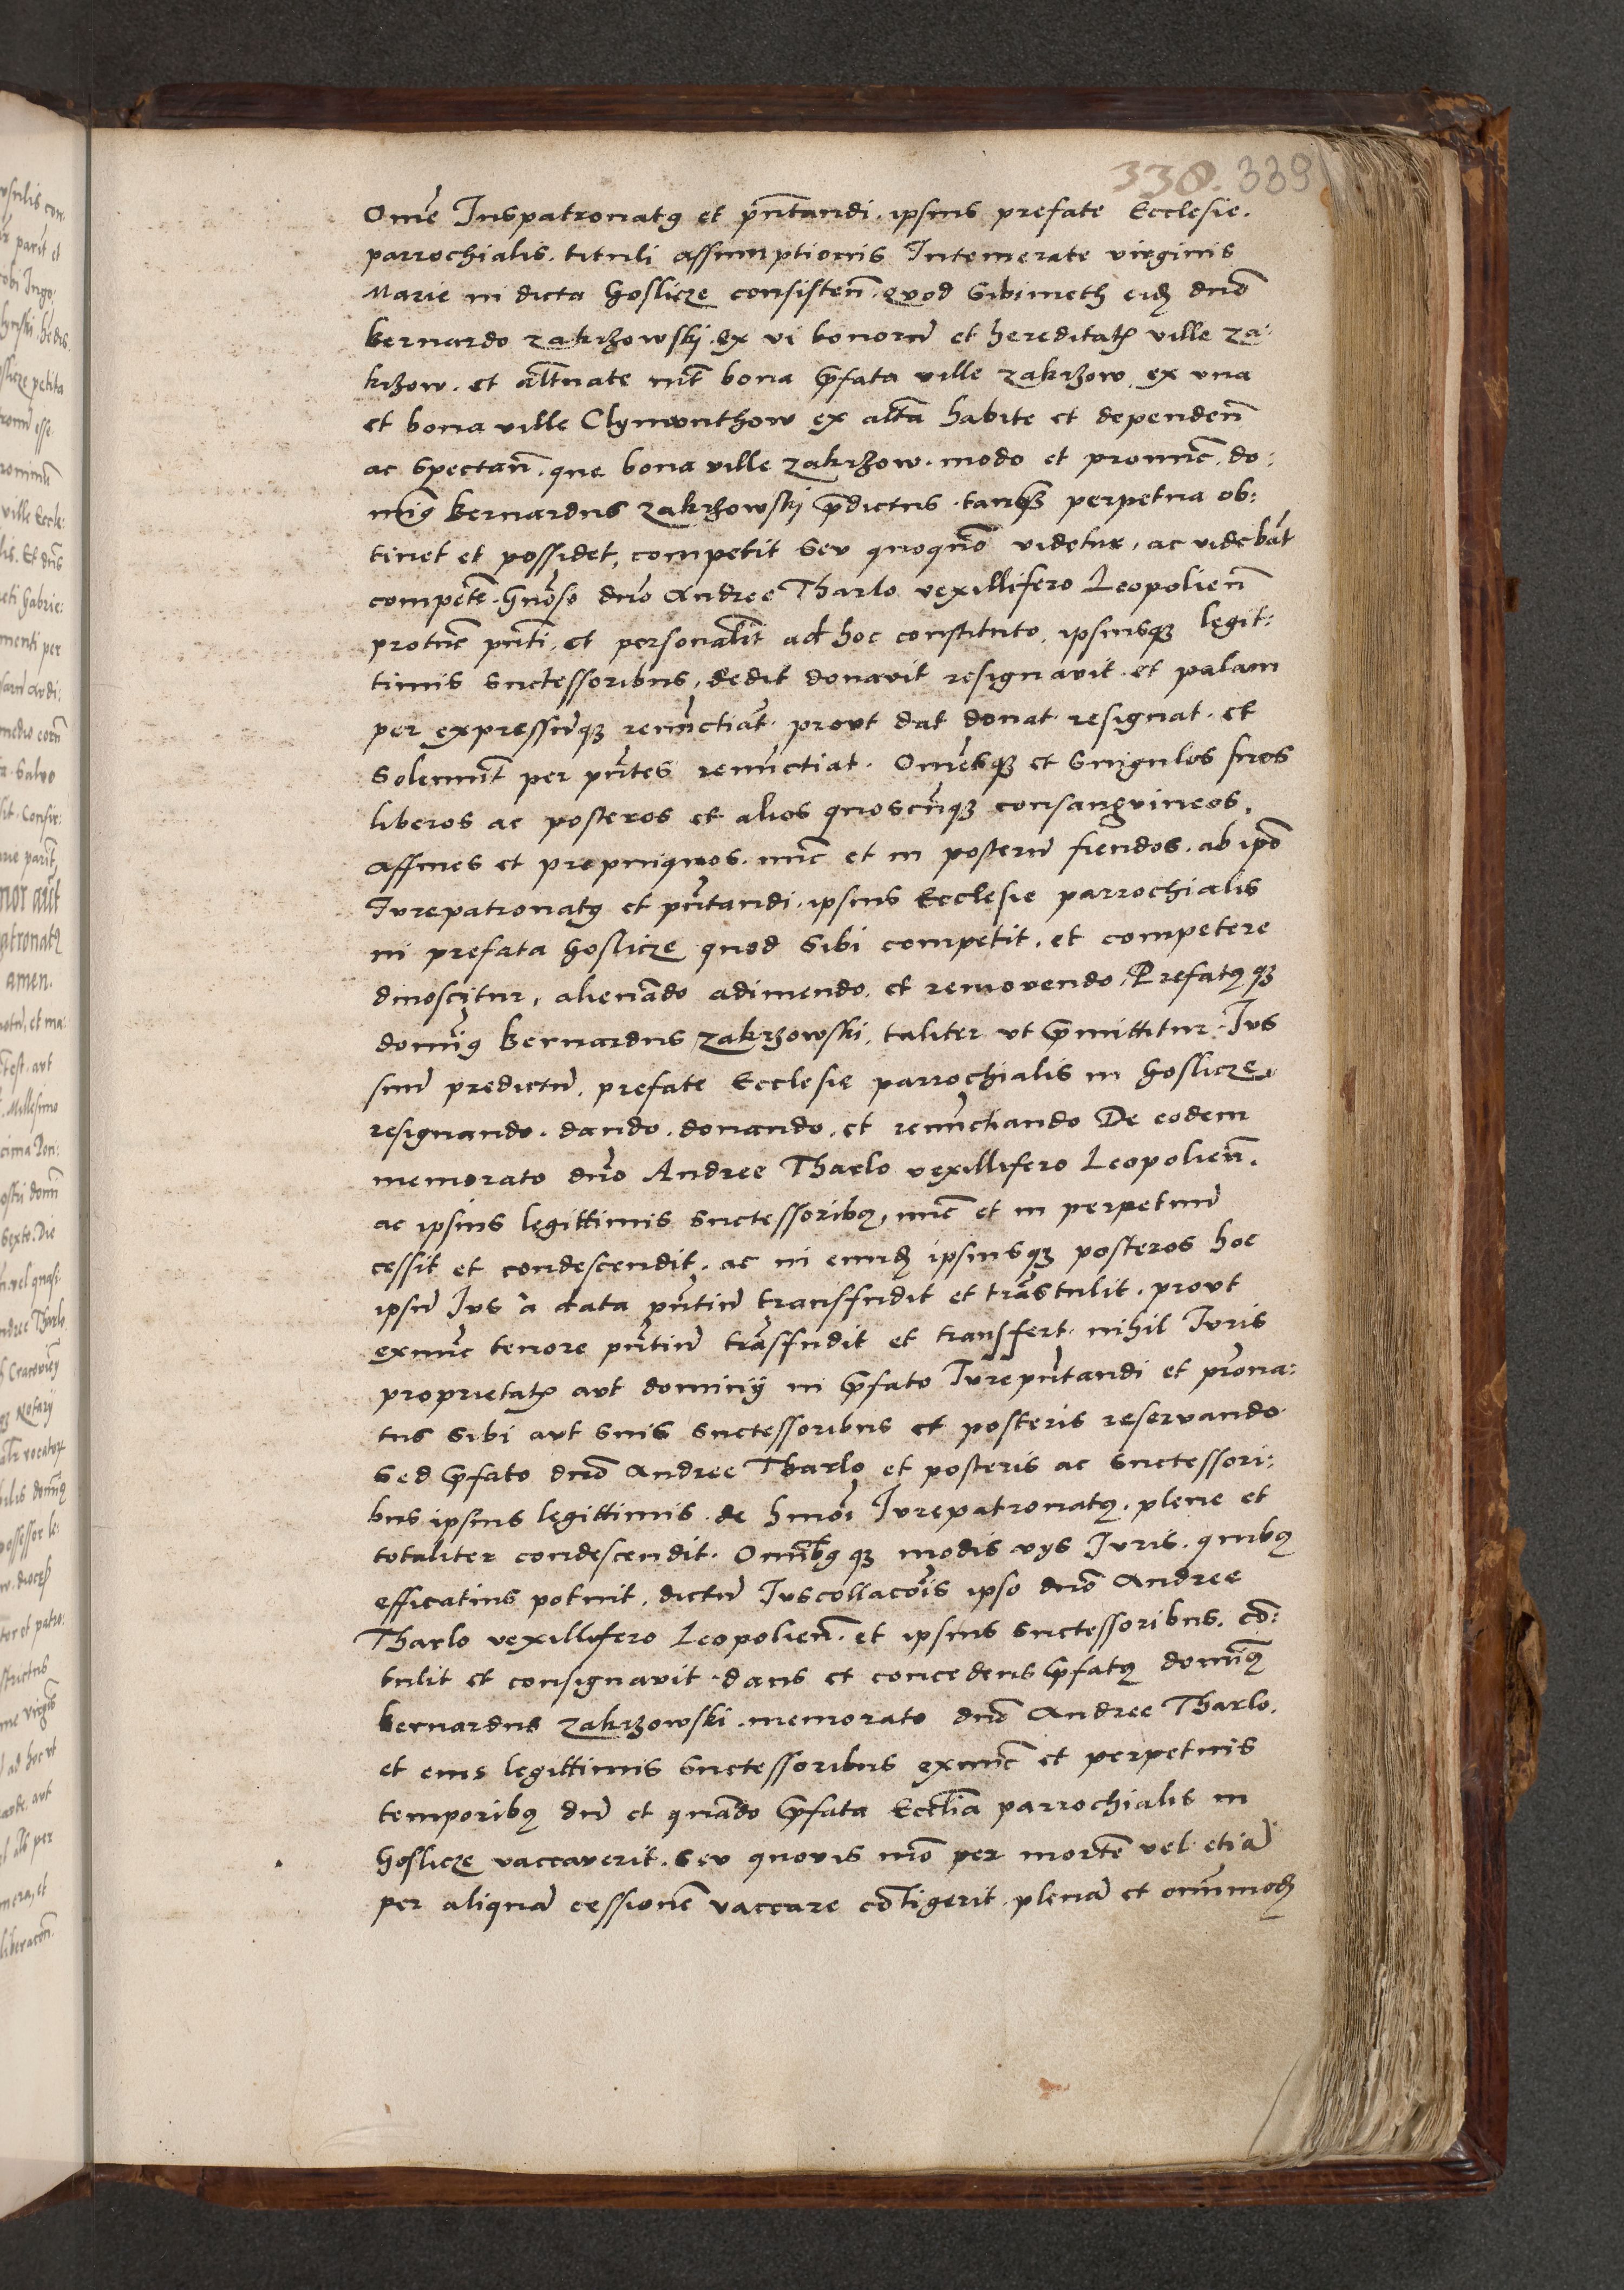 338. 339
Om̅e Iuspatronatꝯ et pn̅tandi. ipsius prefate Ecclesie.
parrochialis. tituli assumptionis Intemerate virginis
Marie in dicta Goslicze consisten̅. quod sibimeth eidꝫ dno̅
Bernardo Zakrzowskj. ex vi bonoru̅ et hereditatꝭ ville Za:
krzow. et alt̅nate int̅ bona p̅fata ville Zakrzow. ex vna
et bona ville Clymonthow ex alt̅a habite et dependen̅
ac spectan̅. que bona ville Zakrzow. modo et pronunc̅. do:
minꝯ Bernardus Zakrzowskj p̅dictus. tanqꝫ perpetua ob:
tinet et possidet, competit seu quoquo̅ videtur, ac videbat̅
compete̅. Gn̅oso dn̅o Andree Tharlo vexillifero Leopolien̅
protunc̅ pn̅ti, et personalit̅ ad hoc constituto, ipsiusqꝫ legit:
timis suctessoribus, dedit donavit resignavit. et palam
per expressu̅qꝫ renu̅ctiat̅. prout dat donat. resignat. et
solemnit̅ per pn̅tes renu̅ctiat. Om̅esqꝫ et singulos suos
liberos ac posteros et alios quoscu̅qꝫ consanguineos,
affines et propinquos. nunc̅ et in posteru̅ fiendos. ab ip̅o
Iurepatronatꝯ et pn̅tandi. ipsius Ecclesie parrochialis
in prefata Goslicze quod sibi competit, et competere
dinoscitur, aliena̅do adimendo, et removendo, Prefatꝯqꝫ
domi̅nꝯ Bernardus Zakrzowski, taliter ut p̅mittitur. Ius
suu̅ predictu̅, prefate Ecclesie parrochialis in Goslicze,
resignando. dando. donando, et renu̅ctiando De eodem
memorato dn̅o Andree Tharlo vexillifero Leopolien̅.
ac ipsius legittimis suctessoribꝯ, nunc̅ et in perpetuu̅
cessit et condescendit. ac in eundꝫ ipsiusqꝫ posteros hoc
ipsu̅ Ius a data pn̅tiu̅ transfudit et tra̅stulit. prout
exnu̅c tenore pn̅tiu̅ tra̅sfudit et transfert. nihil Iuris
proprietatꝭ aut dominij in p̅fato Iurepn̅tandi et pr̅ona:
tus sibi aut suis suctessoribus et posteris reservando
sed p̅fato dno̅ Andree Tharlo et posteris ac suctessori:
bus ipsius legittimis. de hmo̅i Iurepatronatꝯ. plene et
totaliter condescendit. Omi̅bꝯqꝫ modis vijs Iuris. quibꝯ
efficatius potuit, dictu̅ Iuscollaco̅is ipso dno̅ Andree
Tharlo vexillifero Leopolien̅. et ipsius suctessoribus. co̅:
tulit et consignavit. dans et concedens p̅fatꝯ domi̅nꝯ
Bernardus Zakrzowski. memorato dno̅ Andree Tharlo.
et eius legittimis suctessoribus exnunc̅ et perpetuis
temporibꝯ du̅ et qua̅do p̅fata Eccl̅ia parrochialis in
Goslicze vaccaverit. seu quovis mo̅ per morte̅ vel etia̅
per aliqua̅ cessione̅ vaccare co̅tigerit. plena̅ et omn̅imodꝫ